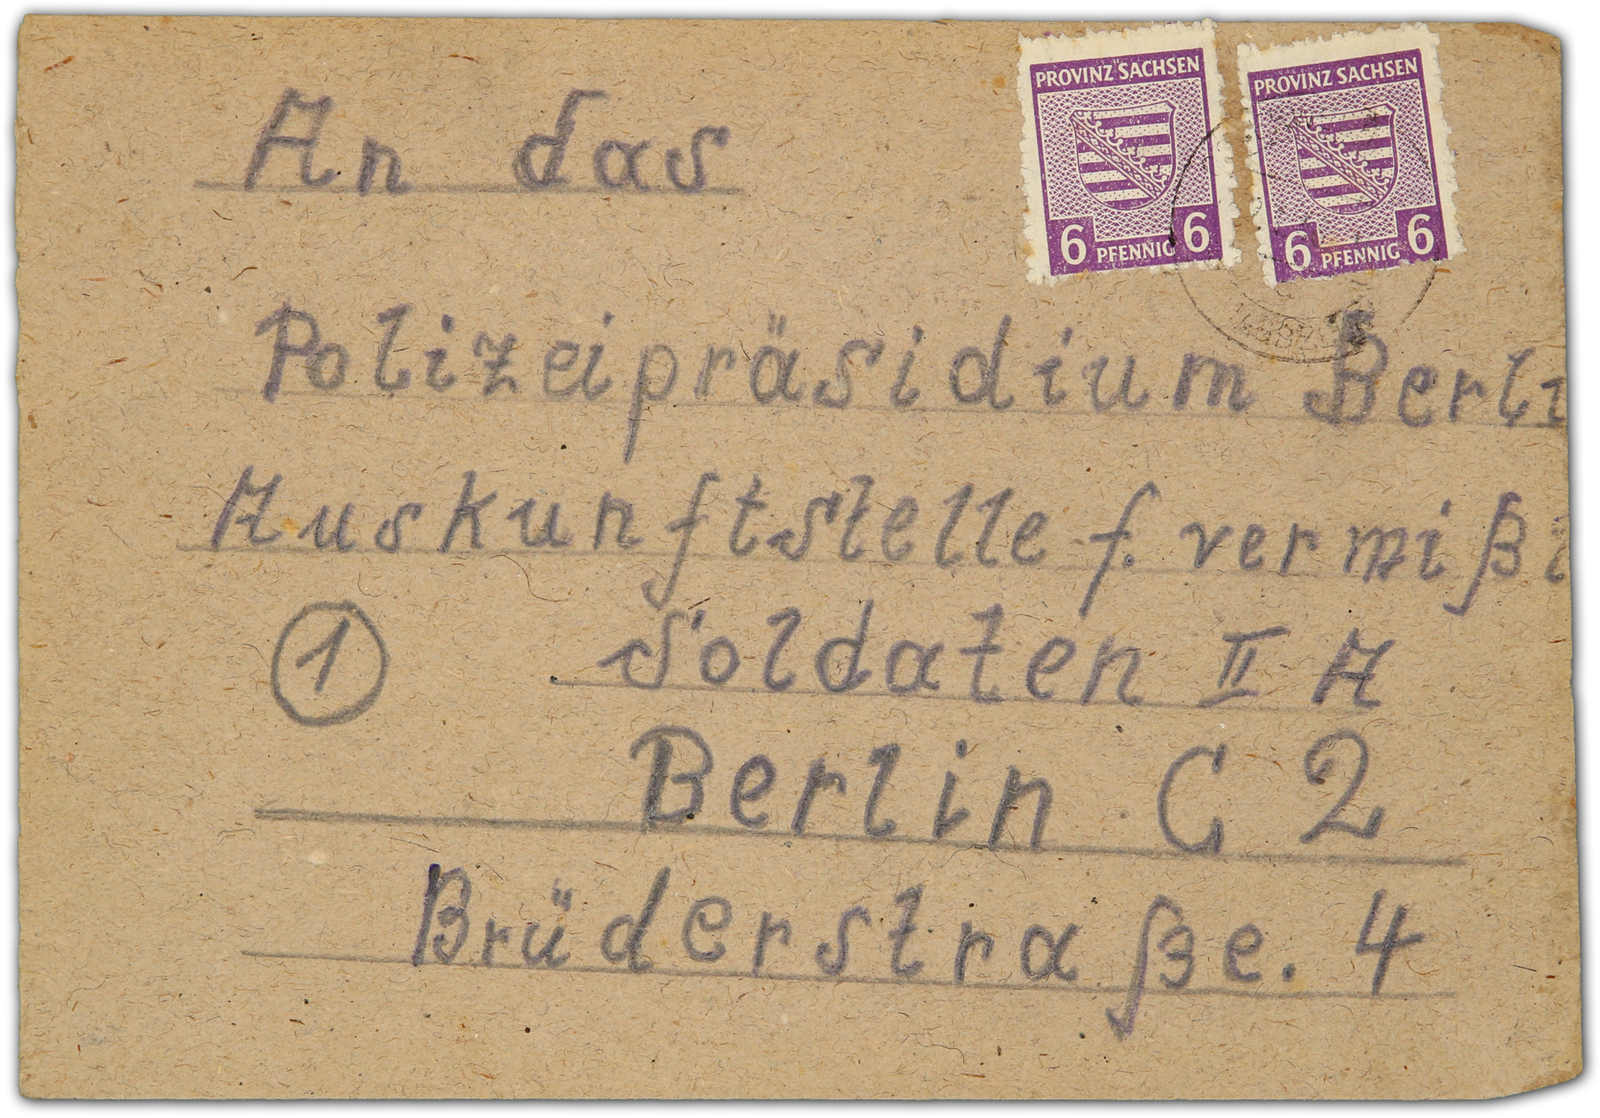 PROVINZ SACHSEN
6 PFENNIG 6
PROVINZ SACHSEN
6 PFENNIG 6
An das
Polizeipräsidium Berli
Auskunftstelle f. vermißt
1
Soldaten II A
Berlin C 2
Brüderstraße. 4